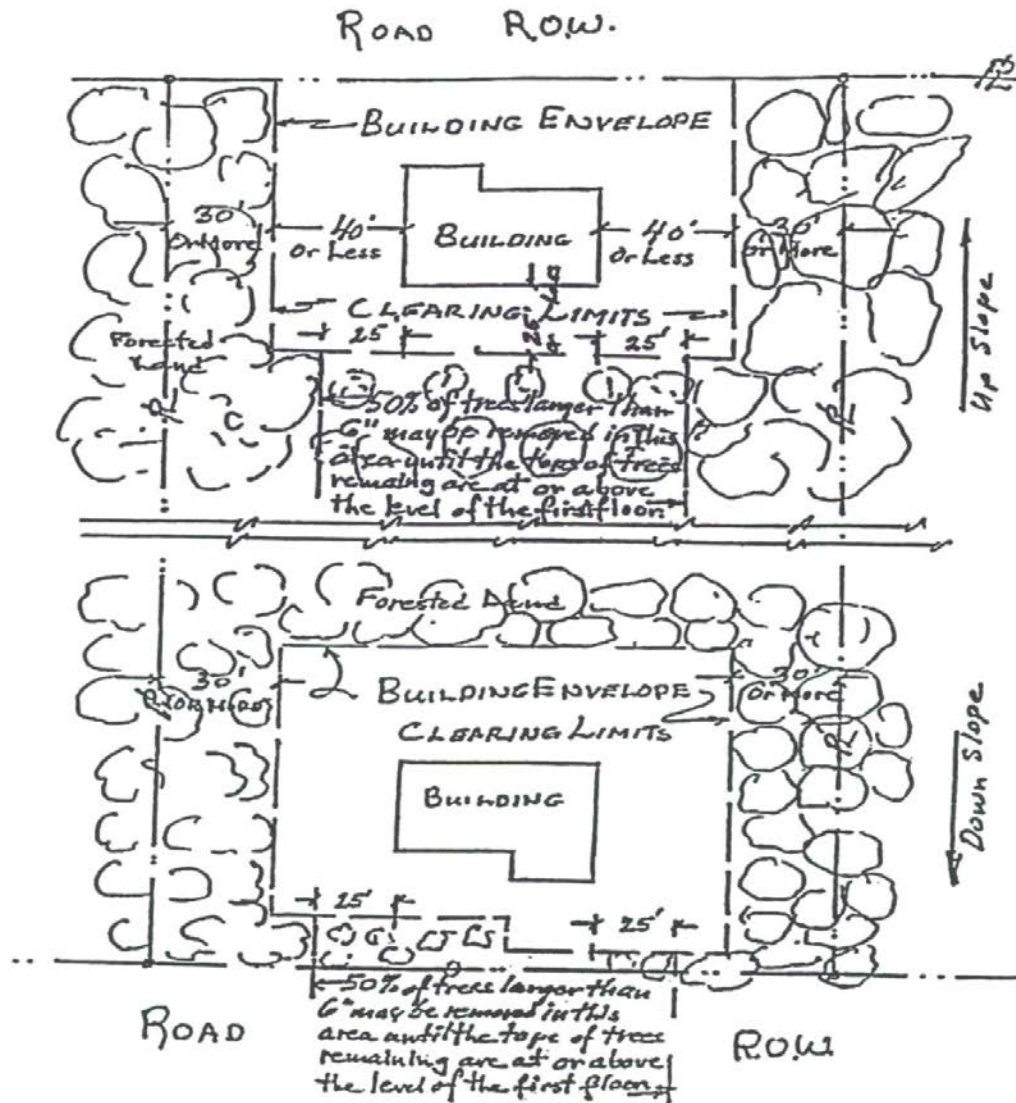 ROAD R.O.W.
BUILDING ENVELOPE
30'
Or More
40'
Or Less
BUILDING
40'
Or Less
30'
Or More
CLEARING LIMITS
25'
25'
25'
Forested
Land
Up Slope
50% of trees larger than
6" may be removed in this
area until the tops of trees
remaing are at or above
the level of the first floor
Forested Land
30'
Or More
BUILDING ENVELOPE
CLEARING LIMITS
30'
Or More
BUILDING
Down Slope
25'
25'
50% of trees larger than
6" may be removed in this
area until the tops of trees
remaining are at or above
the level of the first floor
ROAD R.O.W.